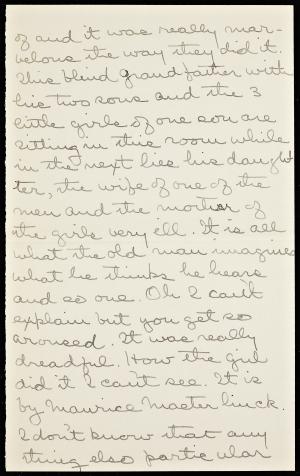 of and it was really mar-
velous the way they did it.
This blind grandfather with
his two sons and the 3
little girls of one son are
sitting in this room while
in the next lies his daught
ter, the wife of one of the
men and the mother of
the girls very ill. It is all
what the old man imagines
what he thinks he hears
and so one. Oh I can't
explain but you get so
aroused. It was really
dreadful. How the girl
did it I can't see. It is
by Maurice Maeter linck.
I don't know that any
thing else particular